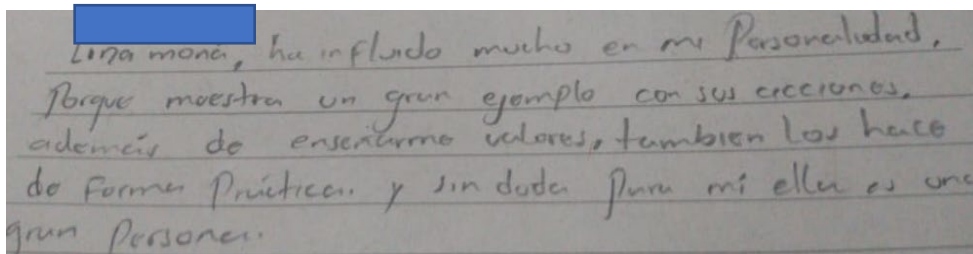 Lina moná, ha influido mucho en mi Personalidad,
Porque muestra un gran ejemplo con sus acciones.
además de enseñarme valores, tambien los hace
de Forma Práctica. y sin duda Para mi ella es una
gran Persona.